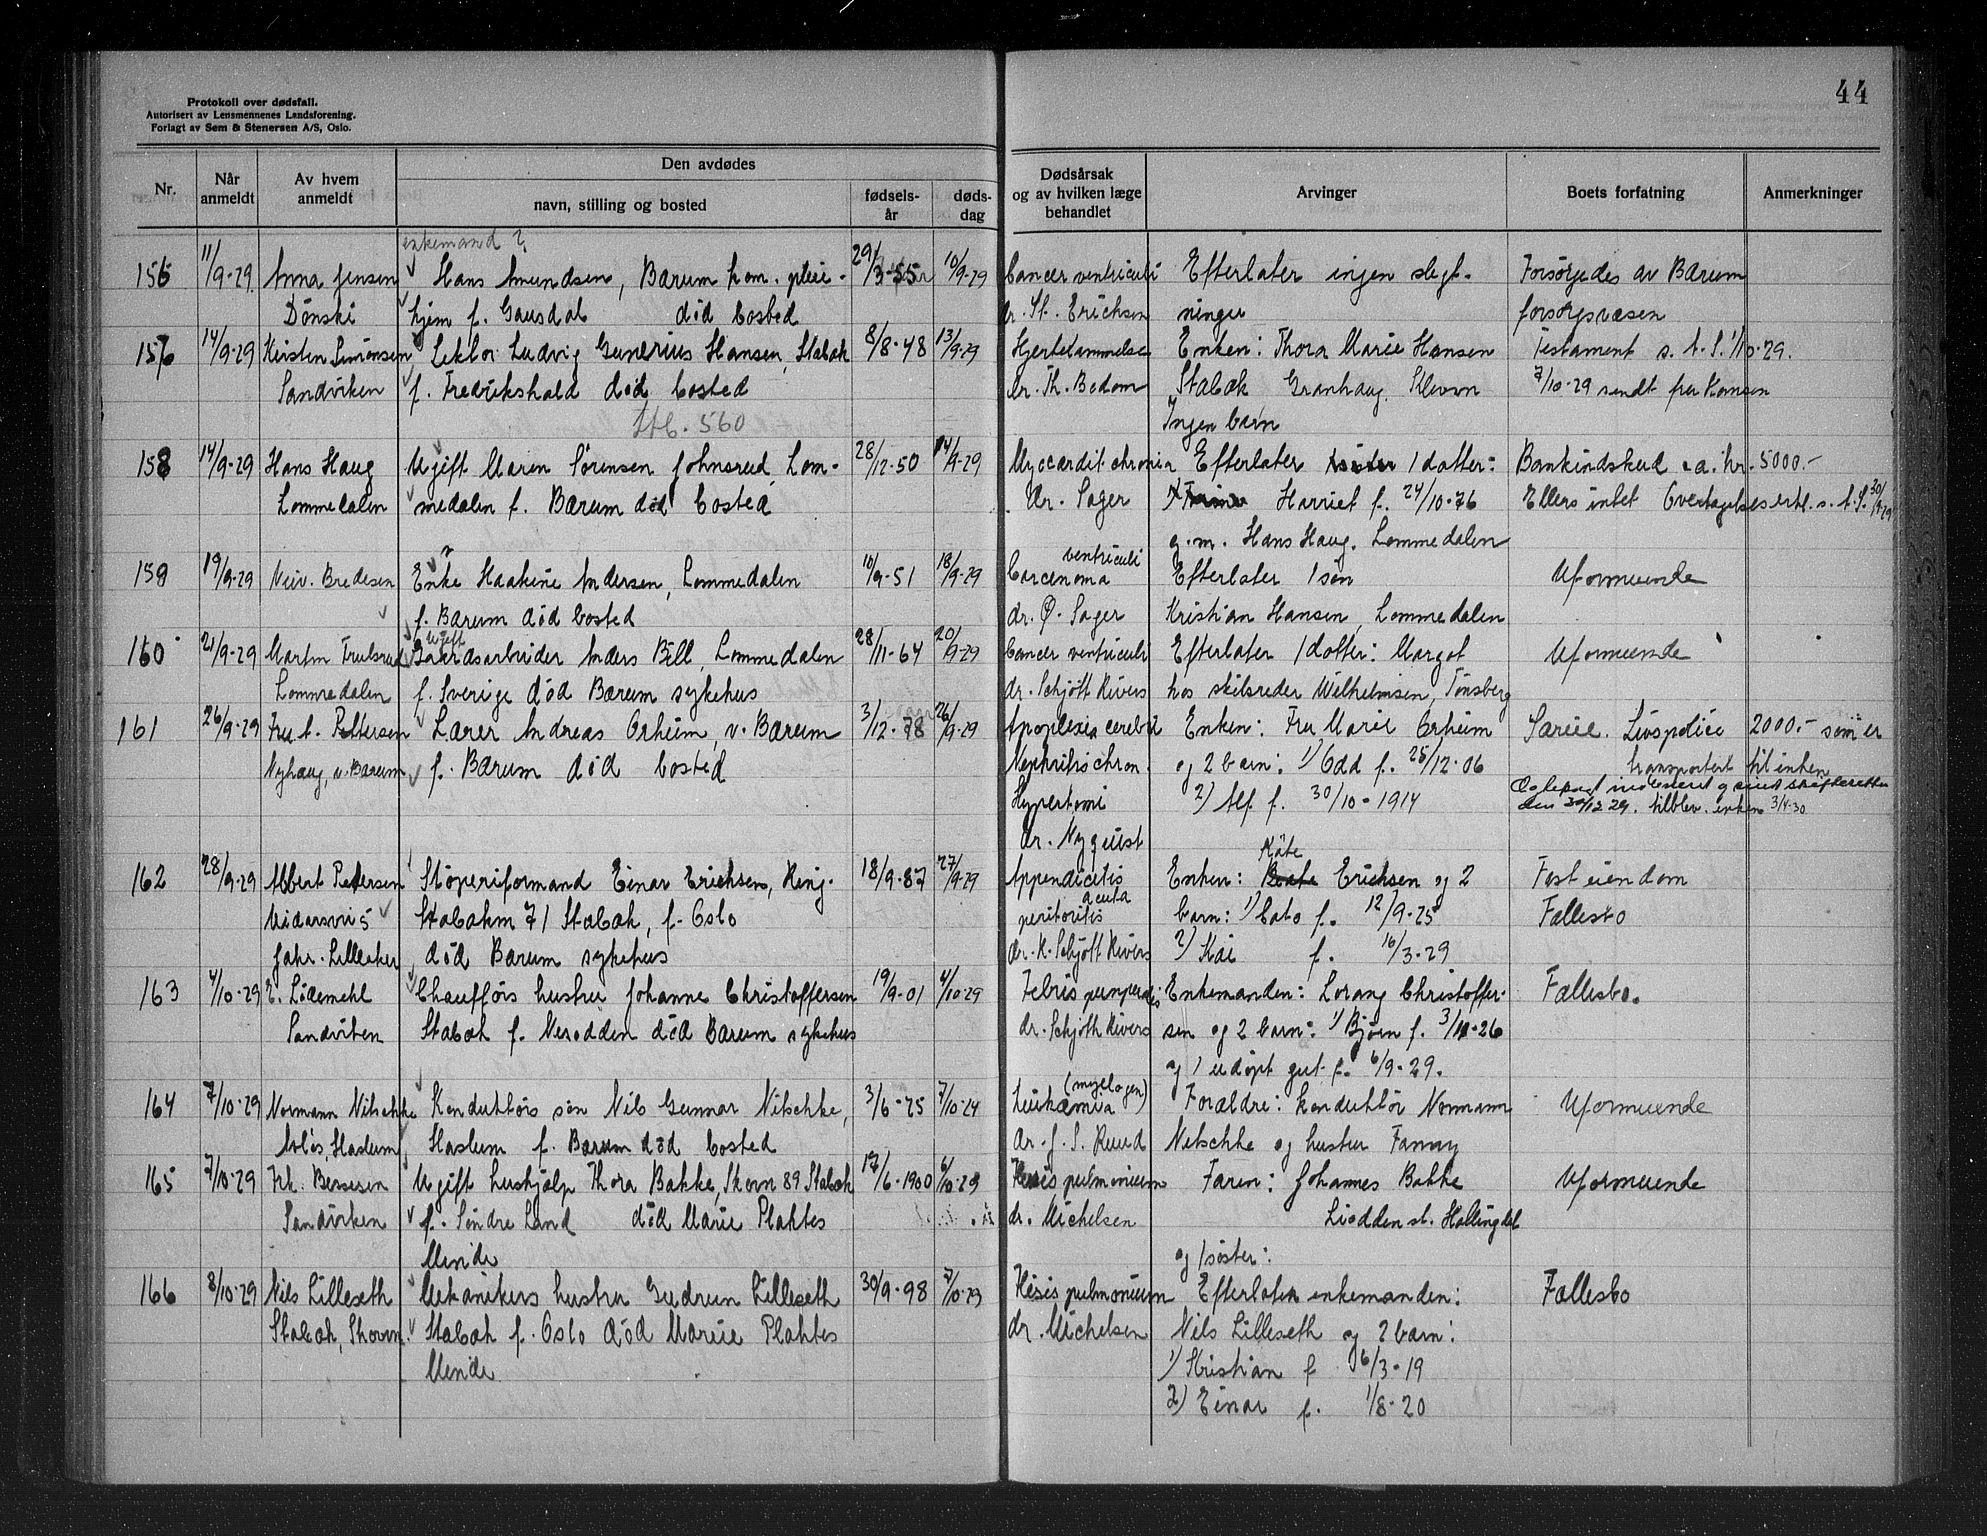 44
Protokoll over dødsfall.
Autorisert av Lensmennenes Landsforening.
Forlagt av Sem & Stenersen A/S, Oslo.
Nr.
Når anmeldt
Av hvem anmeldt
Den avdødes
navn, stilling og bosted
fødsels-år
døds-dag
Dødsårsak og av hvilken læge behandlet
Arvinger
Boets forfatning
Anmerkninger
enkemand ?
156 11/9-29. Anna Jensen Hans Amundsen, Bærum kom. pleie- 29/3-55 10/9-29 Cancer ventriculi Efterlater ingen slegt- Forsørgedes av Bærum
Dønski hjem f. Gausdal død bosted dr. St. Erichsen ninger forsorgsvæsen
157 14/9-29 Kirsten Simonsen Lektor Ludvig Gunerius Hansen, Stabæk 8/8-48 13/9-29 Hjertelammelse Enken: Thora Marie Hansen Testament s. t. S. 1/10-29.
Sandviken f. Fredrikshald død bosted dr. Th. Bedom Stabæk Granhaug 7/10-29 sendt fru Hansen
560 Ingen barn
158 14/9-29 Hans Haug Ugift Maren Sørensen Johnsrud, Lom- 28/12-50 14/9-29 Myocardit chronica Efterlater 1 datter: Bankindskud ca. kr. 5000.-
Lommedalen medalen f. Bærum død bosted dr. Sager Harriet f. 24/10-76 Ellers intet Overtagelseserkl. s. t. S. 30/9-29
g. m. Hans Haug. Lommedalen
159 19/9-29 Bredesen Enke Haakine Andersen, Lommedalen 10/9-51 18/9-29 Carcenoma ventriculi Efterlater 1 søn Uformuende
f. Bærum død bosted dr. Ø. Sager Kristian Hansen, Lommedalen
160 21/9-29 Martin Trulsrud ugift Gaardsarbeider Anders Bill, Lommedalen 28/11-64 20/9-29 Cancer ventriculi Efterlater 1 datter: Margot Uformuende
Lommedalen f. Sverige død Bærum sykehus dr. Schjøtt Rivers hos skibsreder Wilhelmsen, Tønsberg
161 26/9-29 Fru A. Pettersen Lærer Andreas Orheim, v. Bærum 3/12-78 26/9-29 Apoplexia cerebri Enken: Fru Marie Orheim Særeie. Livspolice 2000.- som er
Nyhaug, v. Bærum f. Bærum død bosted Nephritis chron. og 2 barn: 1) Odd f. 25/12-06 transportert til enken
Hypertoni 2) Alf f. 30/10-1914 den 30/12 29. tilblev. enken 3/4-30
dr. Nyquist
162 28/9-29 Albert Pedersen Støperiformand Einar Erichsen, Ring- 18/9-87 27/9-29 Appendicitis Enken: Käte Erichsen og 2 Fast eiendom
Stabækm 71 Stabæk, f. Oslo acuta peritoritis barn: 1) Cato f. 12/9-25 Fællesbo
Lilleaker død Bærum sykehus dr. K. Schjøtt Rivers 2) Kai f. 16/3-29
163 4/10-29 E. Lødemehl Chaufførs hustru Johanne Christoffersen 19/9-01 4/10-29 Febris puerperalis Enkemanden: Lorang Christoffer- Fællesbo.
Sandviken Stabæk f. Nesodden død Bærum sykehus dr. Schjøtt Rivers sen og 2 barn: 1) Bjørn f. 3/11-26
og 1 udøpt gut f. 6/9-29.
164 7/10-29 Normann Nitschke Konduktørs søn Nils Gunnar Nitschke, 3/6-25 7/10-24 Leukæmia (myelogen) Forældre: konduktør Normann Uformuende
Haslum Haslum f. Bærum død bosted dr. J. S. Ruud Nitschke og hustru Fanny
165 7/10-29 Frk. Bersesen Ugift hushjælp Thora Bakke, Skovn 89 Stabæk 17/6-1900 6/10-29 pulmonum Faren: Johannes Bakke Uformuende
Sandviken f. Søndre Land død Marie Plahtes dr. Michelsen Liodden st. Hallingdal
Minde og 1 søster:
166 8/10-29 Nils Lilleseth Mekanikers hustru Gudrun Lilleseth 30/9-98 7/10-29 pulmonum Efterlater enkemanden: Fællesbo
Stabæk, Skovn. Stabæk f. Oslo død Marie Plahtes dr. Michelsen Nils Lilleseth og 2 barn:
Minde 1) Kristian f 6/3-19
2) Einar f. 1/8-20